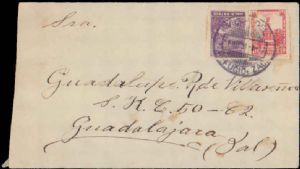 Sra.
Guadalupe R. de Villaseñor
S. K. T. 50-62.
Guadalajara
(Jal)